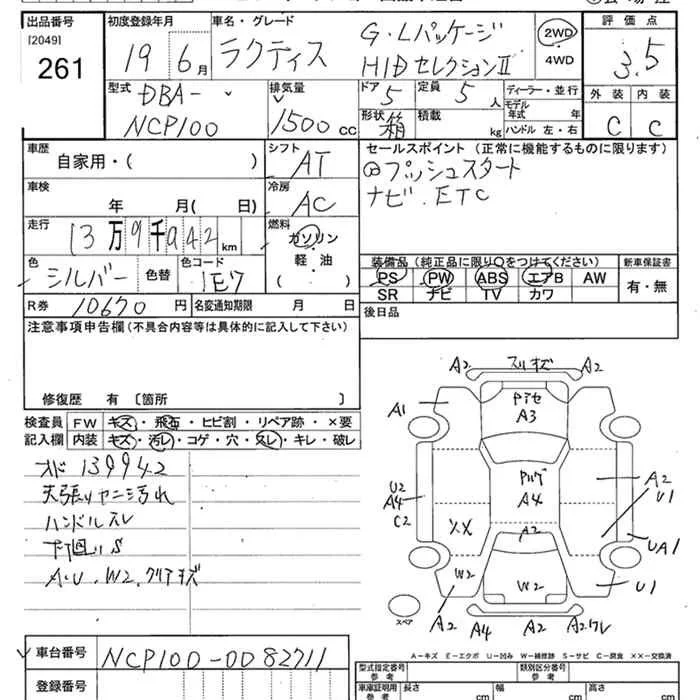 出品番号 初度登録年月 車名・グレード 評価点
[2049]
261
19 6月 ラクティス G・Lパッケージ
HIDセレクションⅡ
2WD
4WD
3.5
型式 排気量 ドア 定員 ディーラー・並行 外装 内装
DBA-
NCP100
1500cc
5 5人
モデル年式 年
形状 箱 積載 kg ハンドル 左・右
C C
車歴 シフト セールスポイント(正常に機能するものに限ります)
自家用・( ) AT
プッシュスタート
ナビ.ETC
車検 冷房
年 月( 日) AC
走行 燃料
13万9千942km
ガソリン
軽・油
( )
色 色替 色コード
シルバー 1E7
装備品(純正品に限り○をつけてください) 新車保証書
PS PW ABS エアB AW 有・無
SR ナビ TV カワ
R券 10670円 名変通知期限 月 日
後日品
注意事項申告欄(不具合内容等は具体的に記入して下さい)
修復歴 有 〔箇所 〕
検査員記入欄
FW キズ・飛石・ヒビ割・リペア跡・×要
内装 キズ・汚レ・コゲ・穴・スレ・キレ・破レ
メド 139942
天張りヤニ汚れ
ハンドルスレ
下回りS
A.U.W2.クリアキズ
A2 スリキズ A2
A1
A3
U2
A4
C2
A4
A2
U1
XX
A2
UA1
W2
W2
U1
スペア
A2 A4 A2 A2ワレ
A-キズ E-エクボ U-凹み W-補修跡 S-サビ C-腐食 XX-交換済
車台番号 NCP100-0082711
登録番号
型式指定番号 参考 類別区分番号 参考
車庫証明用 参考 長さ cm 幅 cm 高さ cm